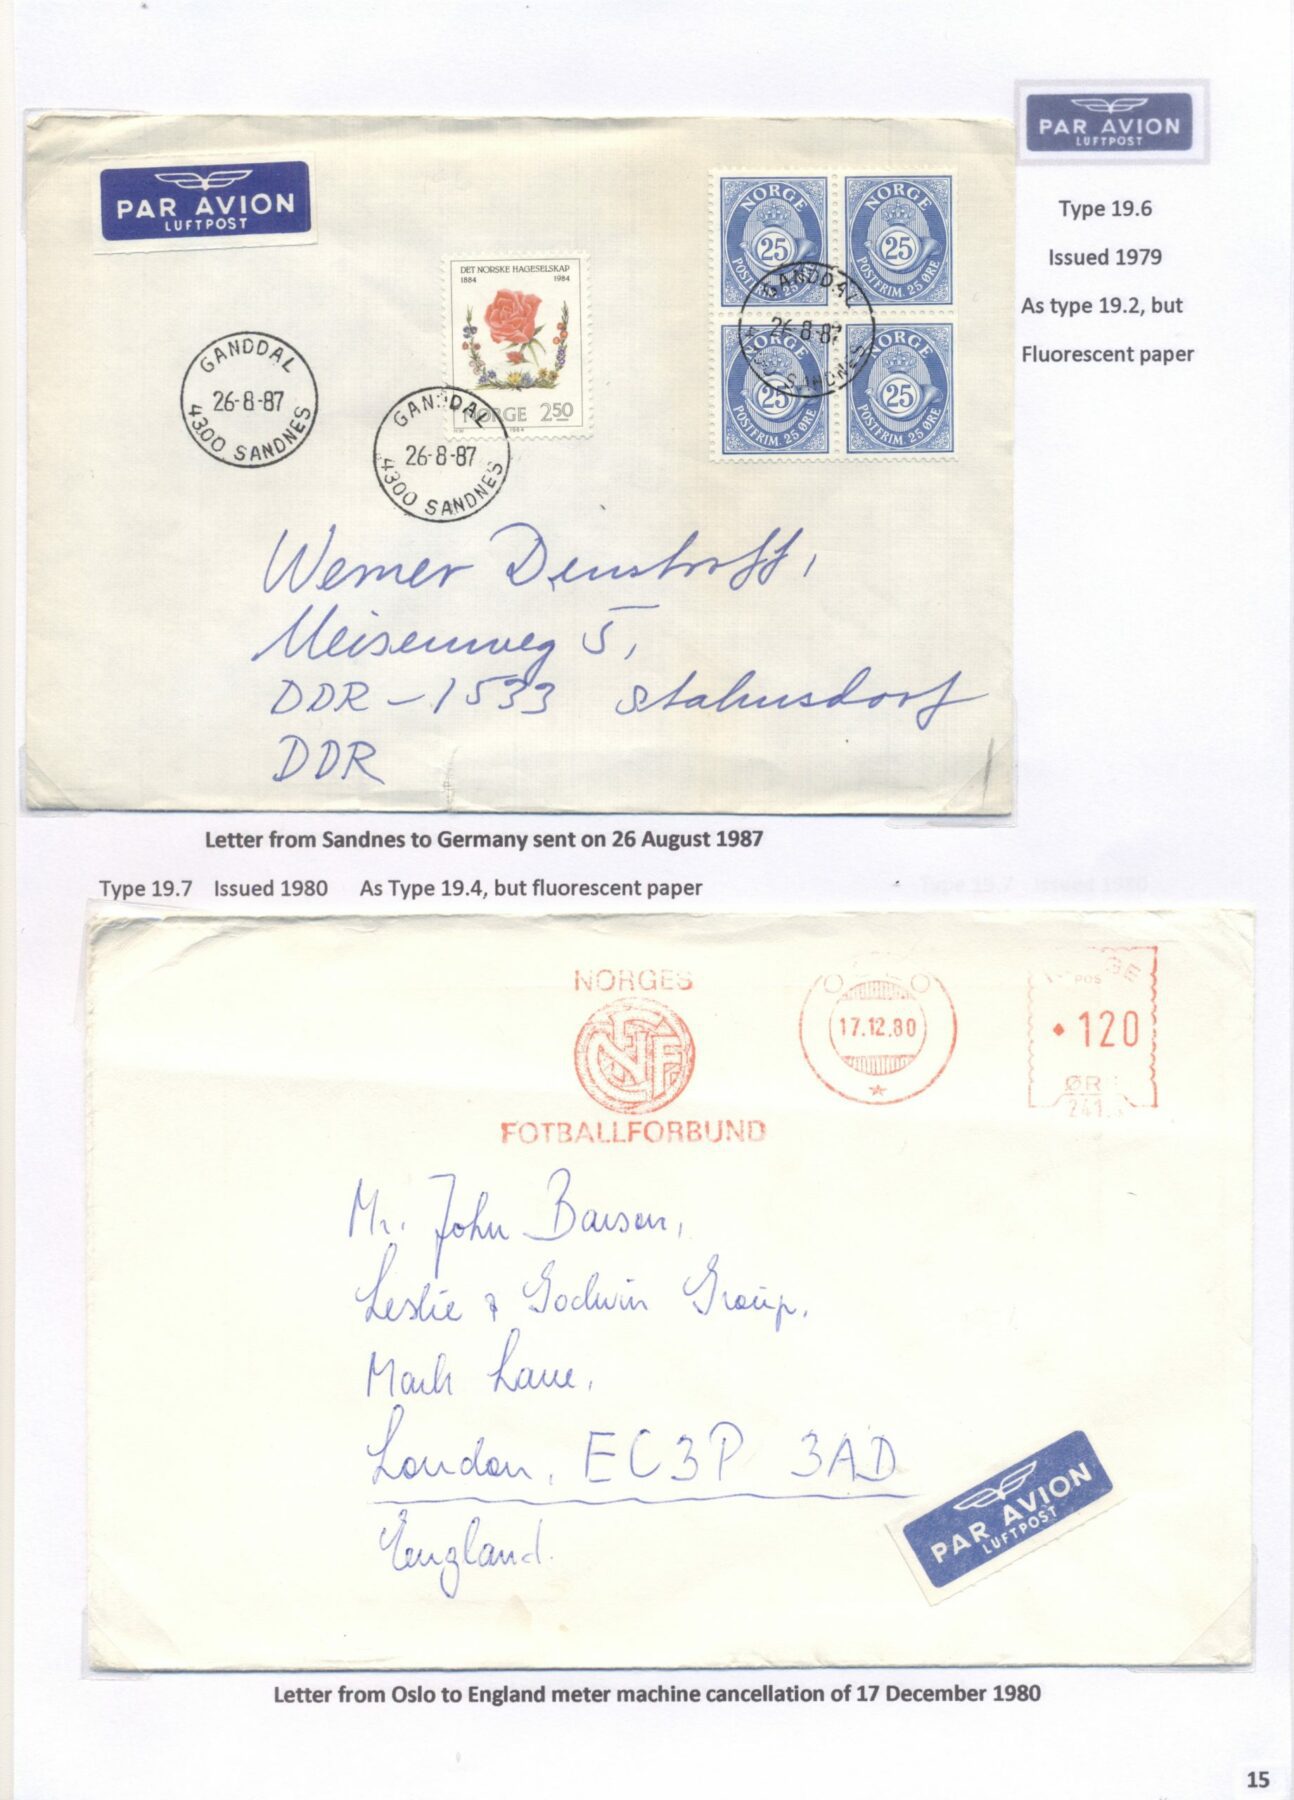 PAR AVION
LUFTPOST
Type 19.6
Issued 1979
As type 19.2, but
Fluorescent paper
PAR AVION
LUFTPOST
DET NORSKE HAGESELSKAP
1884 1984
NORGE 250
1984
NORGE
25
POSTFRIM. 25 ØRE
NORGE
25
POSTFRIM. 25 ØRE
NORGE
25
POSTFRIM. 25 ØRE
NORGE
25
POSTFRIM. 25 ØRE
GANDDAL
26-8-87
4300 SANDNES
GANDDAL
26-8-87
4300 SANDNES
GANDDAL
26-8-87
4300 SANDNES
Werner Denstorff,
Meisenweg 5,
DDR-1533 Stahnsdorf
DDR
Letter from Sandnes to Germany sent on 26 August 1987
Type 19.7 Issued 1980 As Type 19.4, but fluorescent paper
Type 19.7 Issued 1980
NORGES
NFF
FOTBALLFORBUND
17.12.80
120
ØR
241
Mr. John
Leslie & Godwin Group,
Mark Lane,
London, EC3P 3AD
England.
PAR AVION
LUFTPOST
Letter from Oslo to England meter machine cancellation of 17 December 1980
15